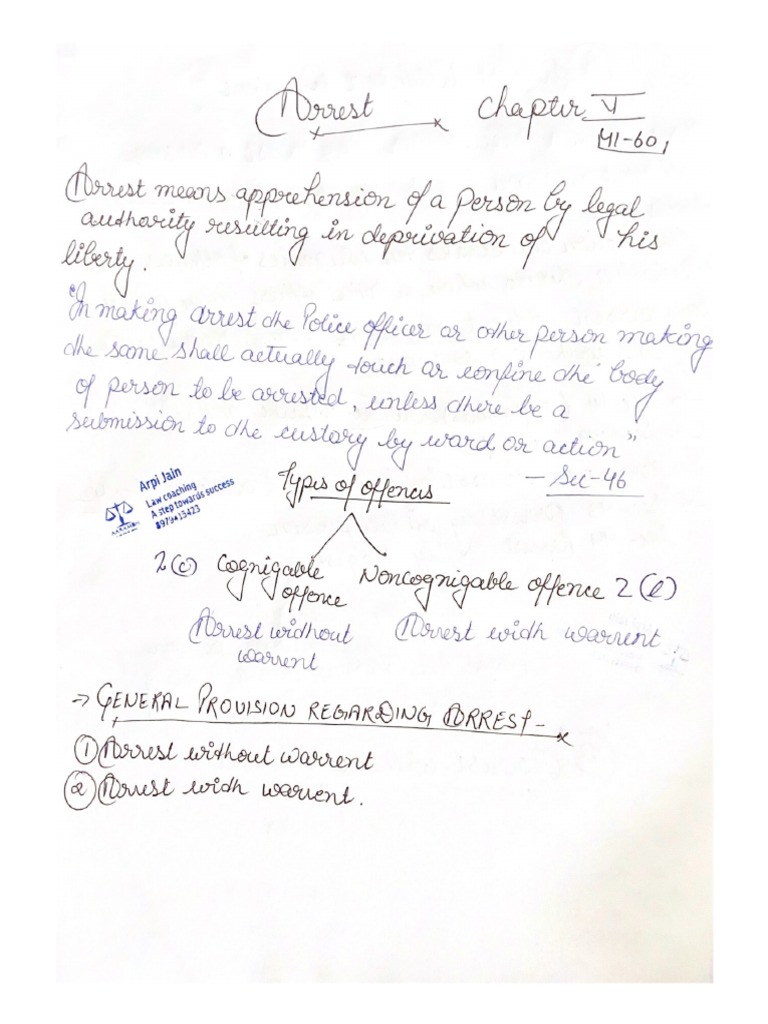 Arrest Chapter V
41-60,
Arrest means apprehension of a person by legal
authority resulting in deprivation of his
liberty.
"In making arrest the Police officer or other person making
the same shall actually touch or confine the body
of person to be arrested, unless there be a
submission to the custory by word or action"
- Sec-46
Arpi Jain
Law coaching
A step towards success
Types of offences
2(c) Cognigable offence
Noncognigable offence 2(l)
Arrest without warrent
Arrest with warrent
→ GENERAL PROVISION REGARDING ARREST -
① Arrest without warrent
② Arrest with warrent.